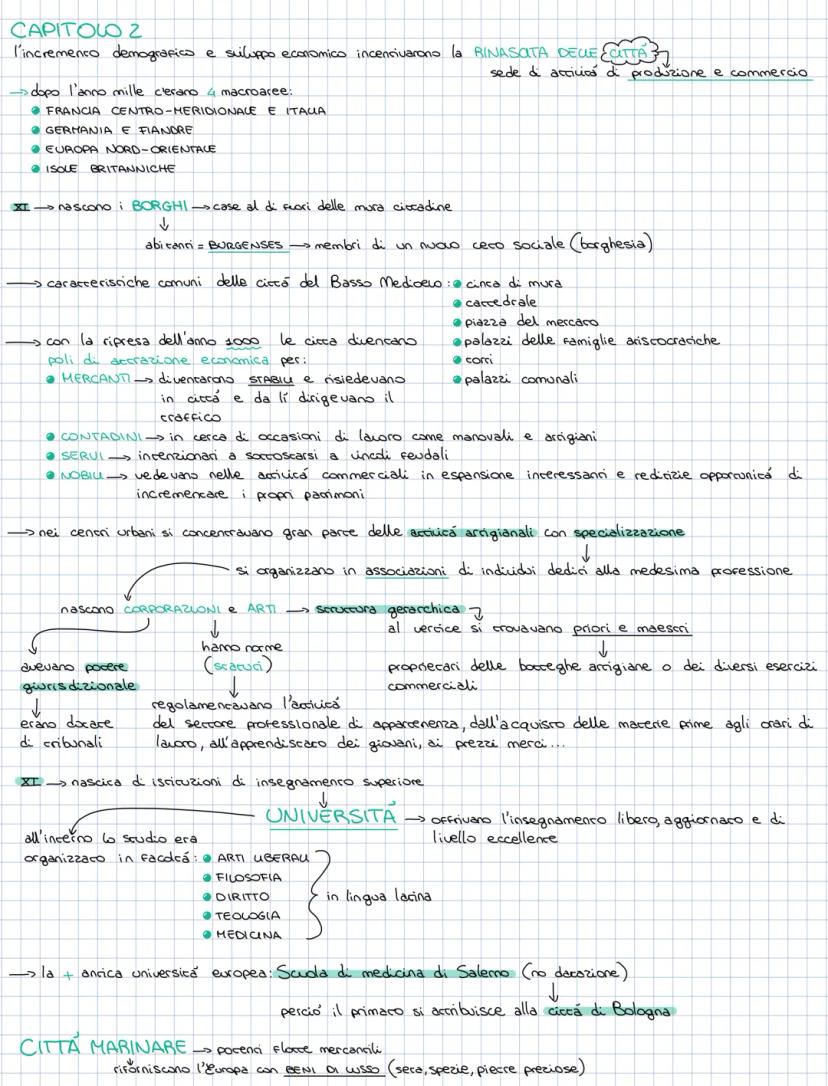 CAPITOLO 2
l'incremento demografico e sviluppo economico incentivarono la RINASCITA DELLE CITTÀ
sede di attività di produzione e commercio
→ dopo l'anno mille c'erano 4 macroaree:
• FRANCIA CENTRO-MERIDIONALE E ITALIA
• GERMANIA E FIANDRE
• EUROPA NORD-ORIENTALE
• ISOLE BRITANNICHE
XI → nascono i BORGHI → case al di fuori delle mura cittadine
↓
abitanti = BURGENSES → membri di un nuovo ceto sociale (borghesia)
→ caratteristiche comuni delle città del Basso Medioevo: • cinta di mura
• cattedrale
• piazza del mercato
• palazzi delle famiglie aristocratiche
• torri
• palazzi comunali
→ con la ripresa dell'anno 1000 le città diventano
poli di attrazione economica per:
• MERCANTI → diventarono STABILI e risiedevano
in città e da lì dirigevano il
traffico
• CONTADINI → in cerca di occasioni di lavoro come manovali e artigiani
• SERVI → intenzionati a sottostarsi a vincoli feudali
• NOBILI → vedevano nelle attività commerciali in espansione interessanti e redditizie opportunità di
incrementare i propri patrimoni
→ nei centri urbani si concentravano gran parte delle attività artigianali con specializzazione
↓
si organizzano in associazioni di individui dedici alla medesima professione
nascono CORPORAZIONI e ARTI → struttura gerarchica
al vertice si trovavano priori e maestri
↓
proprietari delle botteghe artigiane o dei diversi esercizi
commerciali
hanno norme
(statuti)
↓
regolamentavano l'attività
del settore professionale di appartenenza, dall'acquisto delle materie prime agli orari di
lavoro, all'apprendistato dei giovani, ai prezzi merci...
avevano potere
giurisdizionale
↓
erano dotate
di tribunali
XI → nascita di istituzioni di insegnamento superiore
↓
UNIVERSITÀ → offrivano l'insegnamento libero, aggiornato e di
livello eccellente
all'interno lo studio era
organizzato in facoltà: • ARTI LIBERALI
• FILOSOFIA
• DIRITTO
• TEOLOGIA
• MEDICINA
in lingua latina
→ la + antica università europea: Scuola di medicina di Salerno (no datazione)
↓
perciò il primato si attribuisce alla città di Bologna
CITTÀ MARINARE → potenti flotte mercantili
riforniscono l'Europa con BENI DI LUSSO (seta, spezie, pietre preziose)